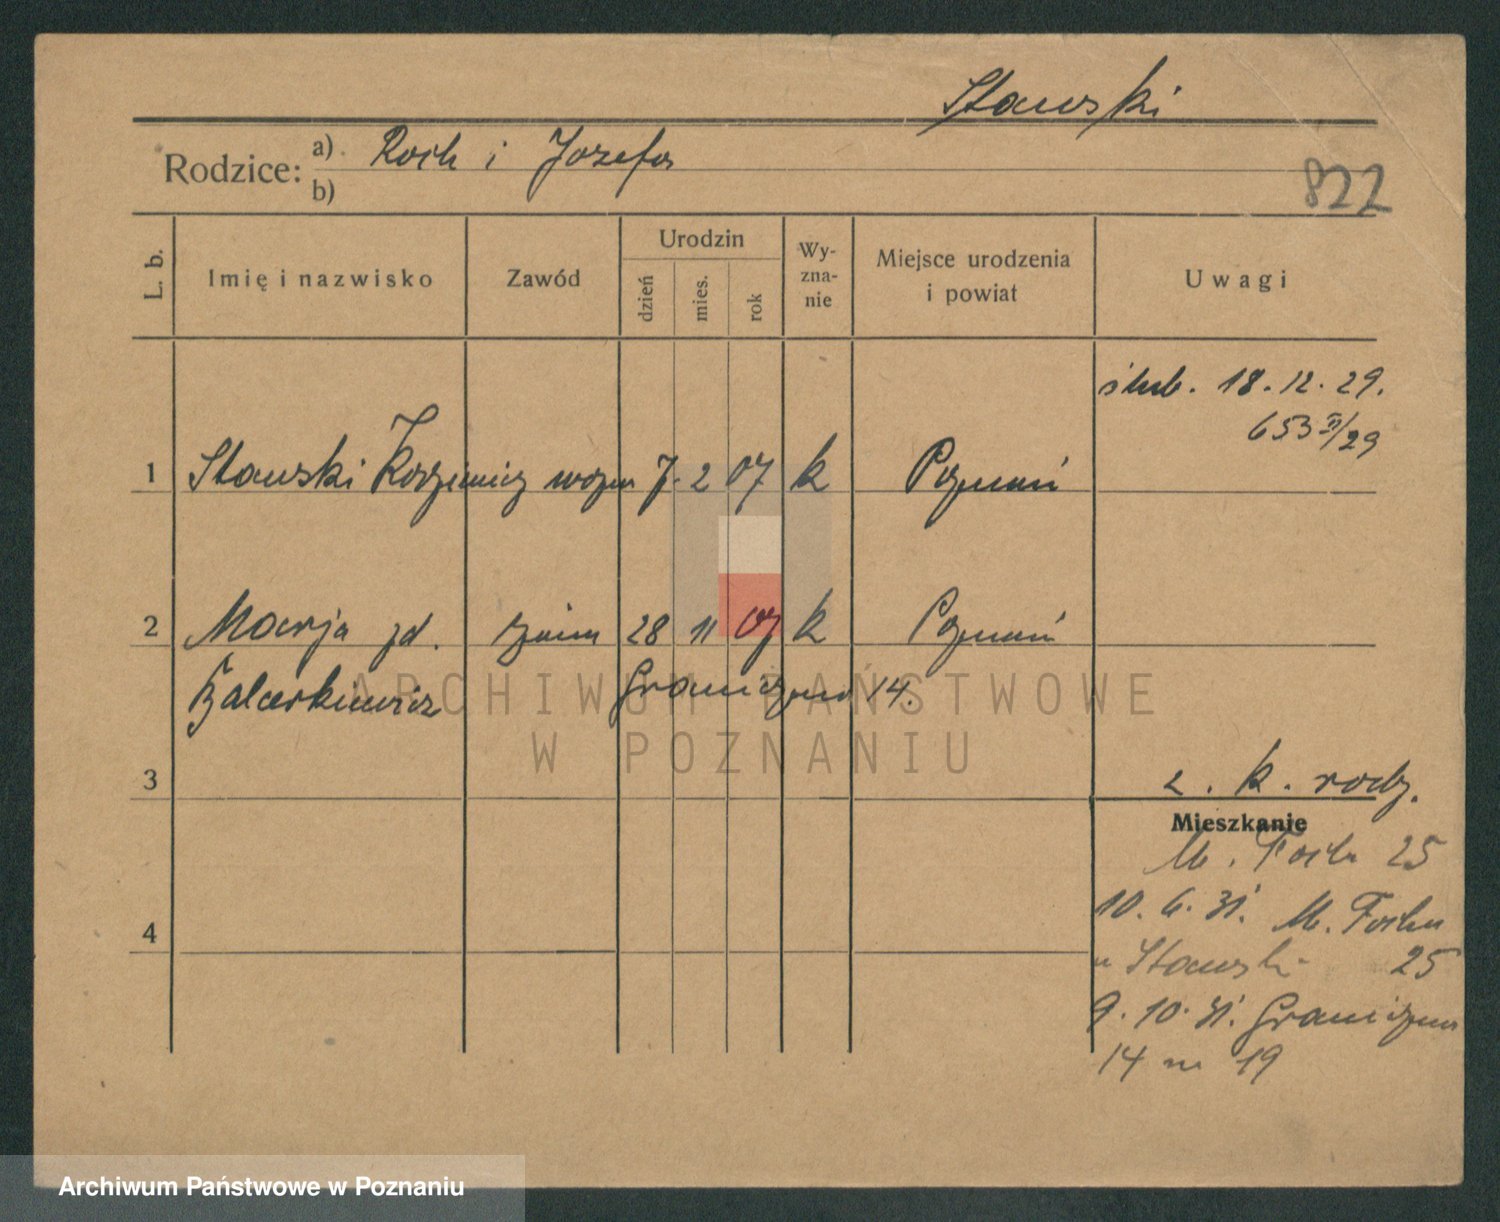 Stawski
Rodzice: a) Roch i Jozefa
b)
822
L. b.
Imię i nazwisko
Zawód
Urodzin
dzień
mies.
rok
Wy-
zna-
nie
Miejsce urodzenia
i powiat
Uwagi
ślub. 18. 12. 29.
653 II/29
1 Stawski Kazimierz 7. 2 07 k Poznań
2 Marja zd. 28 11 07 k Poznań
Balcerkiewicz Graniczna 14.
ARCHIWUM PAŃSTWOWE
W POZNANIU
3
z. k. rodz.
Mieszkanie
M. Focha 25
10. 6. 31. M. Focha
u Stawski 25
4
9. 10. 31. Graniczna
14 m 19
Archiwum Państwowe w Poznaniu